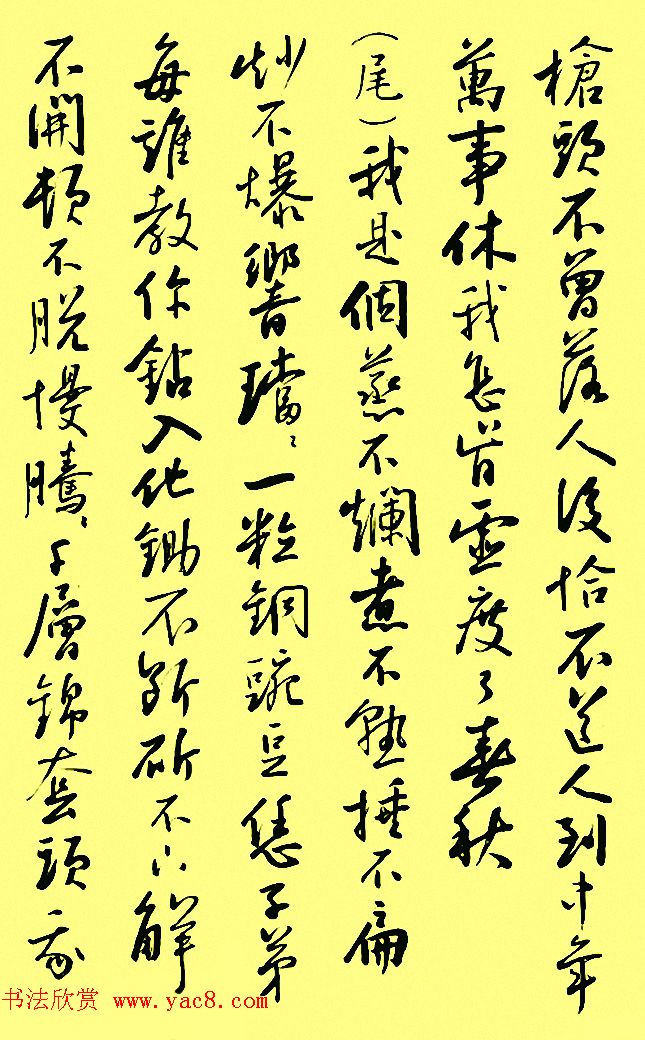 槍頭不曾落人後恰不道人到中年
萬事休我怎肯虛度了春秋
（尾）我是個蒸不爛煮不熟捶不扁
炒不爆響璫々一粒銅豌豆恁子弟
每誰教你鉆入他鋤不斷斫不下解
不開頓不脫慢騰々千層錦套頭我
书法欣赏 www.yac8.com